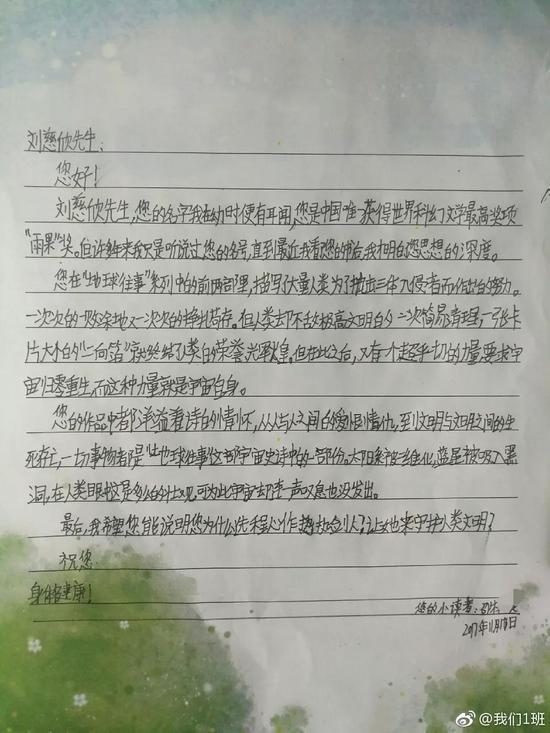 刘慈欣先生:
您好!
刘慈欣先生,您的名字我在幼时便有耳闻,您是中国唯一获得世界科幻文学最高奖项
"雨果"奖。但许多年来我只是听说过您的名号,直到最近我看您的作品后我才明白您思想的深度。
您在"地球往事"系列中的前两部里,描写了大量人类为了抵抗三体入侵者而做出的努力。
一次次的一败涂地又一次次的挣扎苟存。但人类却不敌极高文明的一次简易清理,一张卡
片大小的"二向箔"就终结了人类的荣誉光耀辉煌。但在此之后,又有个超乎一切的力量要求宇
宙归零重生,而这种力量就是宇宙自身。
您的作品中都洋溢着诗的情怀,从人与人之间的爱恨情仇,到文明与文明之间的生
死存亡,一切事物都是"地球往事"这部宇宙史诗中的一部份。太阳系被二维化,蓝星被吸入黑
洞,在人类眼中这是多么的壮观,可为此宇宙却连一声叹息也没发出。
最后,我希望您能说明您为什么选程心作为执剑人?让她来守护人类文明?
祝您
身体健康!
您的小读者:
2017年11月19日
@我们1班